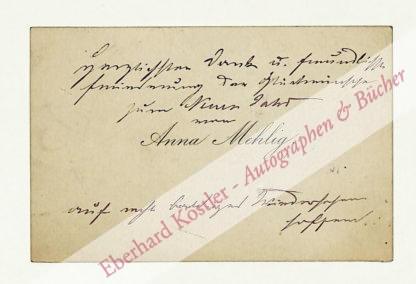 Herzlichsten Dank u. freundlichste
Erwiderung der Glückwünsche
zum Neuen Jahr
von
Anna Mehlig
auf recht baldiges Wiedersehen
hoffend.
Eberhard Köstler - Autographen & Bücher